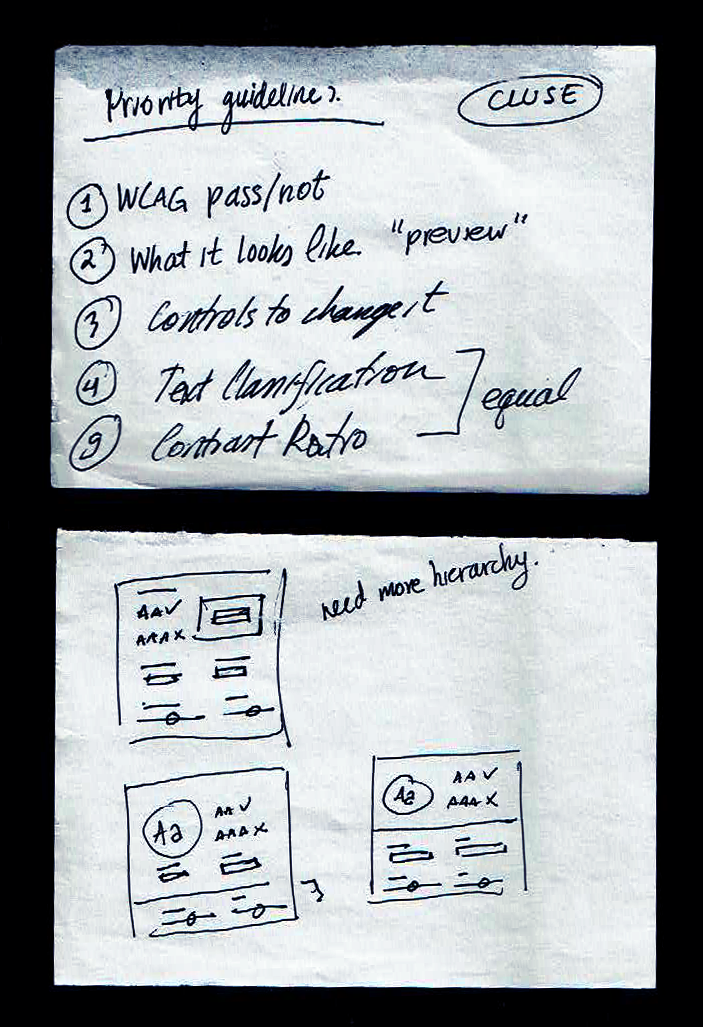 Priority guidelines.
CLUSE
1 WCAG pass/not
2 What it looks like. "preview"
3 Controls to change it
4 Text Classification
5 Contrast Ratio
equal
need more hierarchy.
AA✓
AAAX
Aa
AA✓
AAAX
Aa
AA✓
AAAX